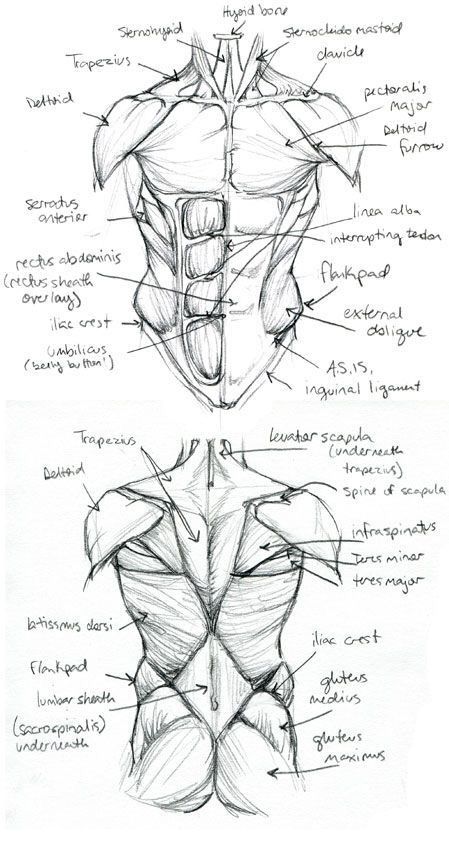 Hyoid bone
Sternohyoid
Sternocleido mastoid
Trapezius
clavicle
Deltoid
pectoralis
major
Deltoid
furrow
serratus
anterior
linea alba
interrupting tendon
rectus abdominis
(rectus sheath
overlay)
flankpad
iliac crest
external
oblique
umbilicus
('belly button')
A.S.I.S.
inguinal ligament
Trapezius
levator scapula
(underneath
trapezius)
Deltoid
spine of scapula
infraspinatus
teres minor
teres major
latissmus dorsi
iliac crest
flankpad
gluteus
medius
lumbar sheath
(sacrospinalis)
underneath
gluteus
maximus